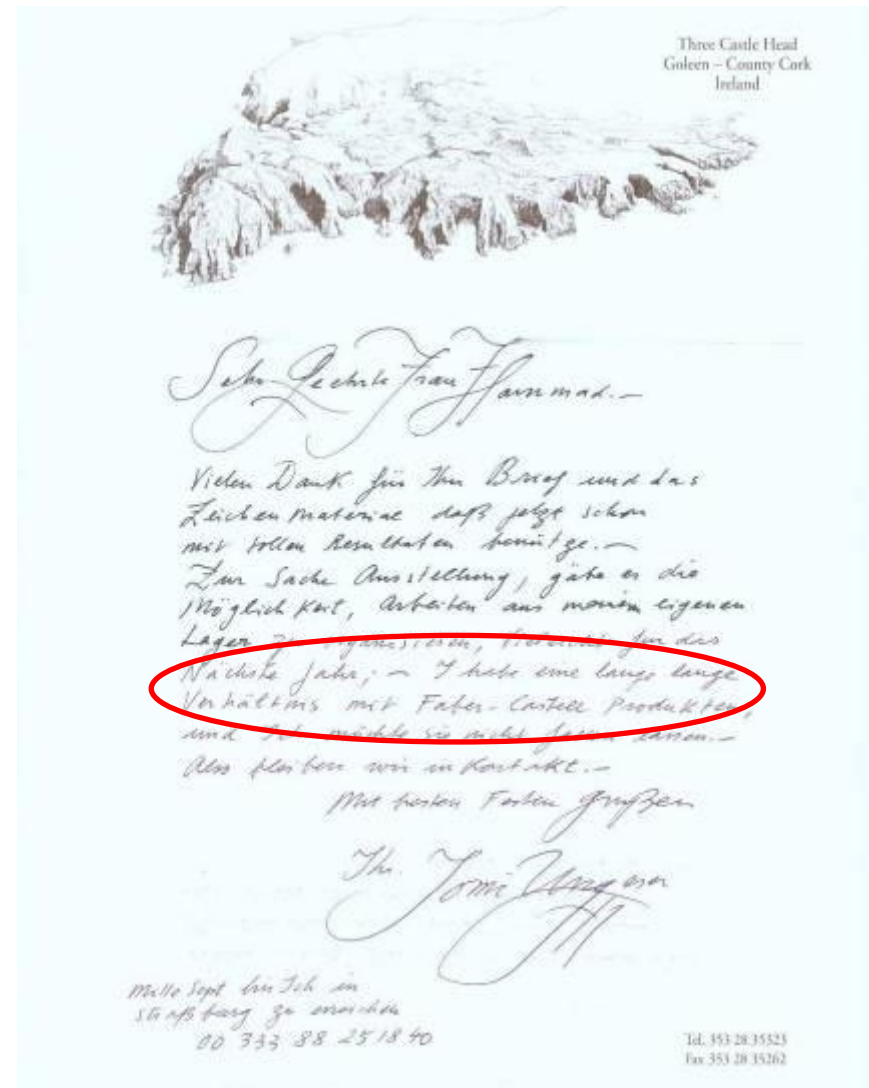 Three Castle Head
Goleen – County Cork
Ireland
Sehr Geehrte Frau
Vielen Dank für Ihr Brief und das
Zeichenmaterial daß jetzt schon
mit tollen Resultaten benütge.–
Zur Sache Ausstellung, gäbe es die
Möglichkeit, Arbeiten aus meinem eigenen
Lager zu organisieren, vieleicht für das
Nächste Jahr; – I habe eine lange lange
Verhältnis mit Faber-Castell Produkten,
und Ich möchte sie nicht lassen.–
Also bleiben wir in Kontakt.–
Mit besten Festen Grüßen
Ihr. Tomi Ungerer
Mitte Sept bin Ich in
Straßburg zu erreichen
00 333 88 25 18 40
Tel. 353 28 35323
Fax 353 28 35262